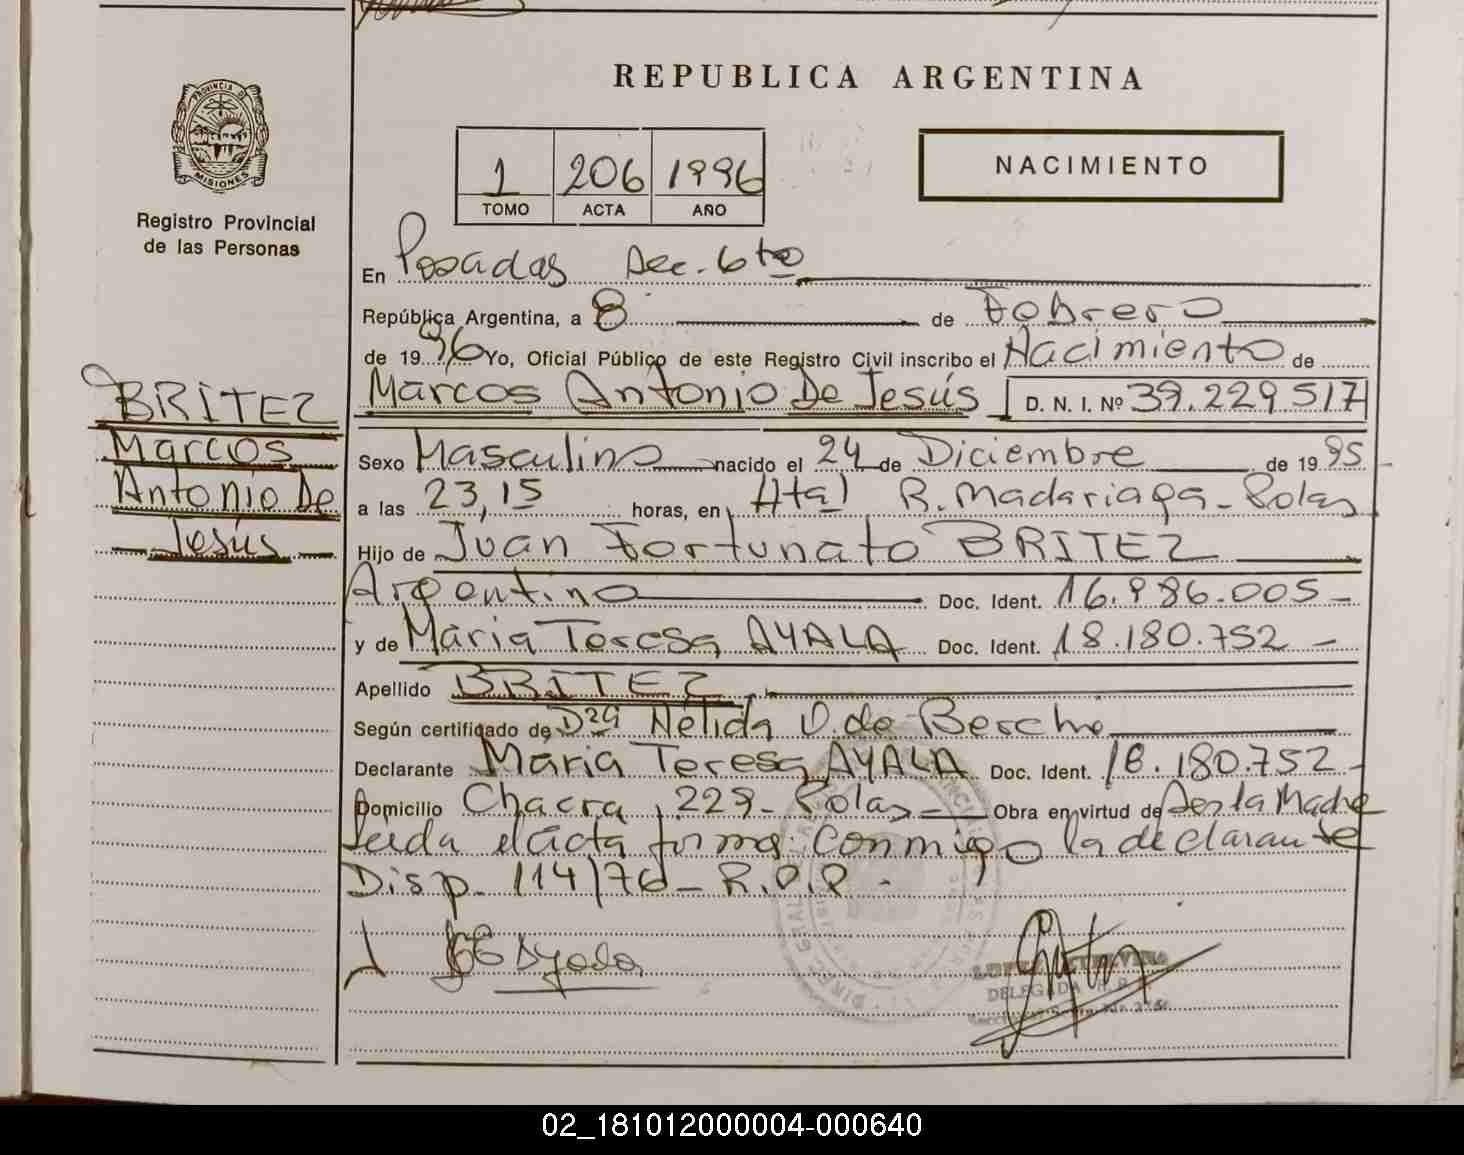 PROVINCIA DE
MISIONES
Registro Provincial
de las Personas
BRITEZ
Marcos
Antonio De
Jesús
REPUBLICA ARGENTINA
1 206 1996
TOMO ACTA AÑO
NACIMIENTO
En Posadas Sec. 6to
República Argentina, a 8 de Febrero
de 1996 Yo, Oficial Público de este Registro Civil inscribo el Nacimiento de
Marcos Antonio De Jesús D. N. I. Nº 39.229.517
Sexo Masculino nacido el 24 de Diciembre de 1995
a las 23,15 horas, en Htal R. Madariaga - Pdas
Hijo de Juan Fortunato BRITEZ
Argentino Doc. Ident. 16.986.005 -
y de María Teresa AYALA Doc. Ident. 18.180.752 -
Apellido BRITEZ
Según certificado de Dra Nélida V. de
Declarante María Teresa AYALA Doc. Ident. 18.180.752 -
Domicilio Chacra 229 - Pdas Obra en virtud de Ser la Madre
Leida el acta firma conmigo la declarante
Disp. 114/76 - R.P.P.
Ayala
DELEGADA R. P. P.
02_181012000004-000640